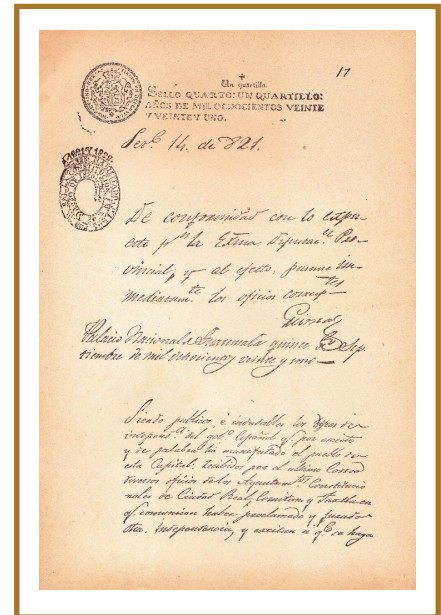 17
Un quartillo.
SELLO QUARTO: UN QUARTILLO:
AÑOS DE MIL OCHOCIENTOS VEINTE
Y VEINTE Y UNO.
Sepᵉ 14. de 821.
De conformidad con lo expu-
esto pʳ la Exma. Diputacᵒⁿ Pro-
vincial; y al efecto, pasense in-
mediatamᵗᵉ los oficios corresptes
Palacio Nacional de Guatemala quince de Sep-
tiembre de mil ochocientos veinte y uno
Siendo publicos è indudables los deseos de
independᵃ del gobᵒ Español qᵉ por escrito
y de palabra ha manifestado el pueblo de
esta Capital: recibidos por el ultimo Correo
diversos oficios de los Ayuntamᵗᵒˢ Constitucio
nales de Ciudad Real, Comitan, y Tuxtla en
qᵉ comunican haber proclamado y jurado
dha. independencia, y excitan a qᵉ se haga